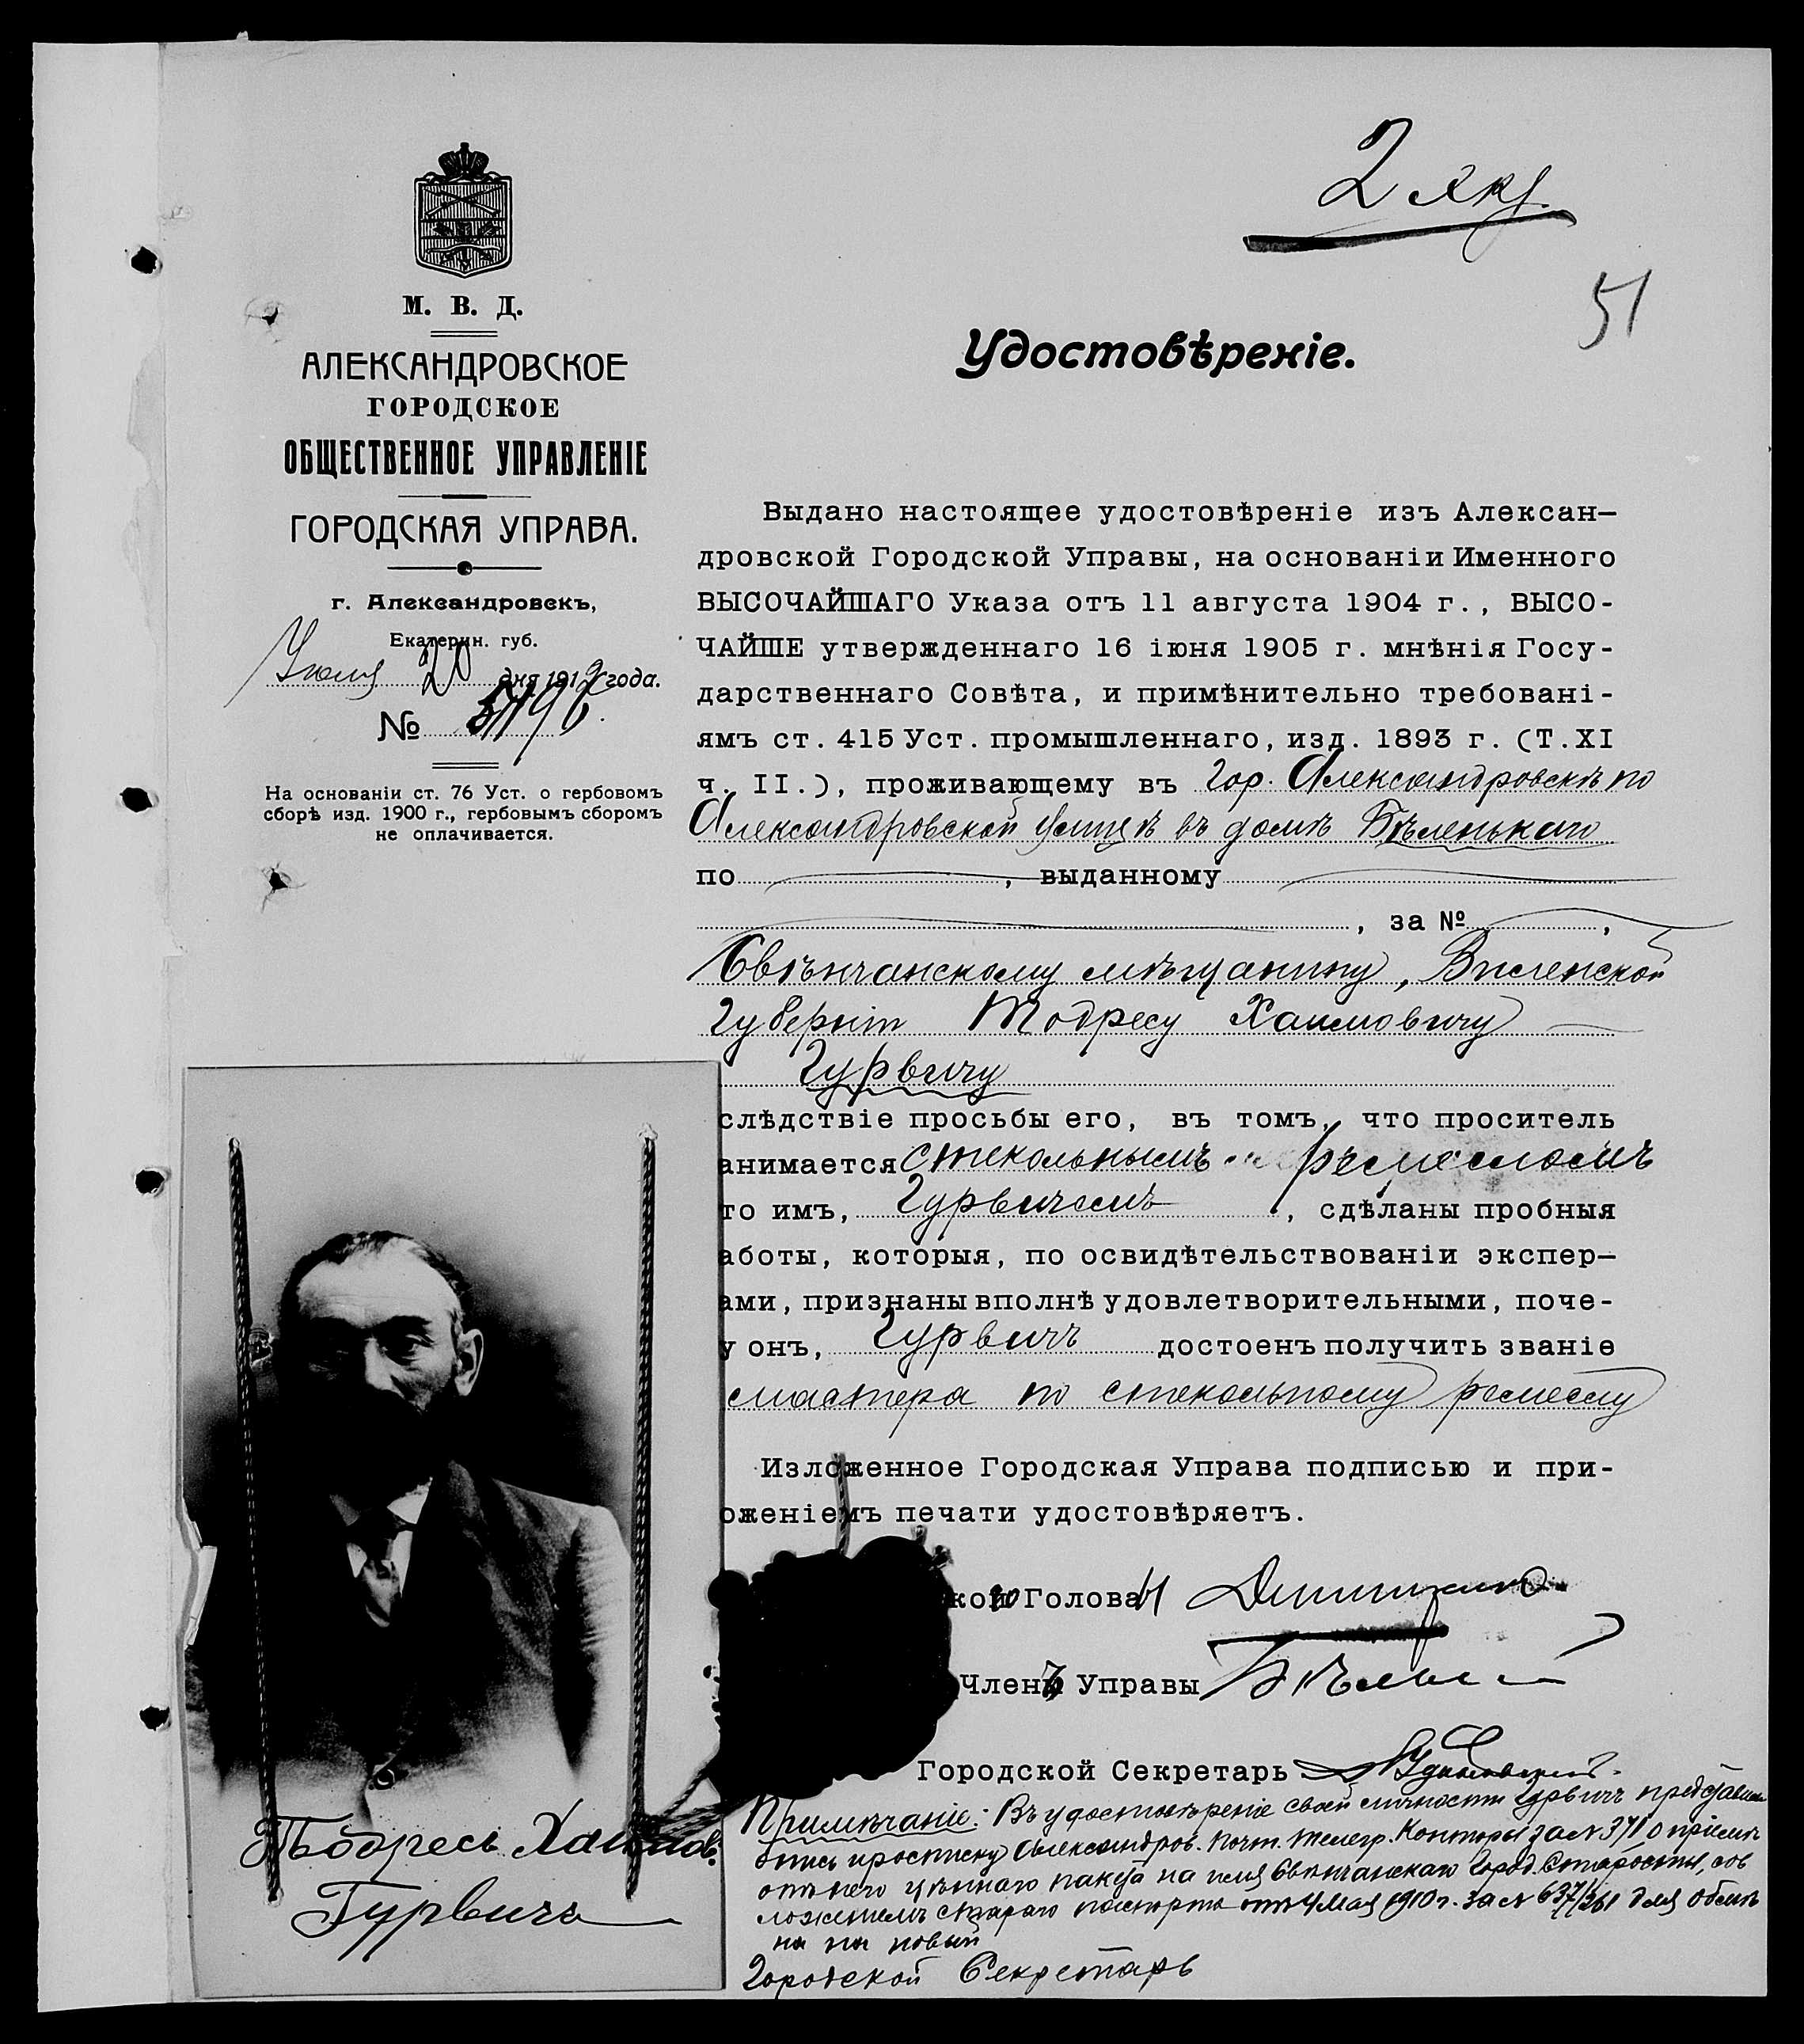 2 экз.
51
М. В. Д.
АЛЕКСАНДРОВСКОЕ
ГОРОДСКОЕ
ОБЩЕСТВЕННОЕ УПРАВЛЕНІЕ
ГОРОДСКАЯ УПРАВА.
г. Александровскъ,
Екатерин. губ.
Іюля 20 дня 1912 года.
№ 5196.
На основаніи ст. 76 Уст. о гербовомъ
сборѣ изд. 1900 г., гербовымъ сборомъ
не оплачивается.
Удостовѣреніе.
Выдано настоящее удостовѣреніе изъ Алексан—
дровской Городской Управы, на основаніи Именного
ВЫСОЧАЙШАГО Указа отъ 11 августа 1904 г., ВЫСО-
ЧАЙШЕ утвержденнаго 16 іюня 1905 г. мнѣнія Госу-
дарственнаго Совѣта, и примѣнительно требовані-
ямъ ст. 415 Уст. промышленнаго, изд. 1893 г. (Т. XI
ч. II.), проживающему въ гор. Александровскѣ по
Александровской улицѣ въ домѣ Бѣленькаго
по , выданному
, за №
Свѣнчанскому мѣщанину, Виленской
губерніи Тодресу Хаимовичу
Гурвичу
слѣдствіе просьбы его, въ томъ, что проситель
анимается стекольнымъ ремесломъ
то имъ, Гурвичемъ, сдѣланы пробныя
аботы, которыя, по освидѣтельствованіи экспер—
ами, признаны вполнѣ удовлетворительными, поче-
у онъ, Гурвичъ достоенъ получить званіе
мастера по стекольному ремеслу
Изложенное Городская Управа подписью и при-
оженіемъ печати удостовѣряетъ.
кой Голова
Членъ Управы
Городской Секретарь
Примѣчаніе: Въ удостовѣреніе своей личности Гурвичъ представилъ
росписку Александров. Почт. Телегр. Конторы за № 371 о пріемѣ
отъ него цѣннаго пакета на имя Свѣнчанскаго Город. Старосты, со в
ложеніемъ стараго паспорта отъ 4 Мая 1910 г. за № 637/261 для обмѣ
на на новый
Городской Секретарь
Тодресъ Хаимов.
Гурвичъ